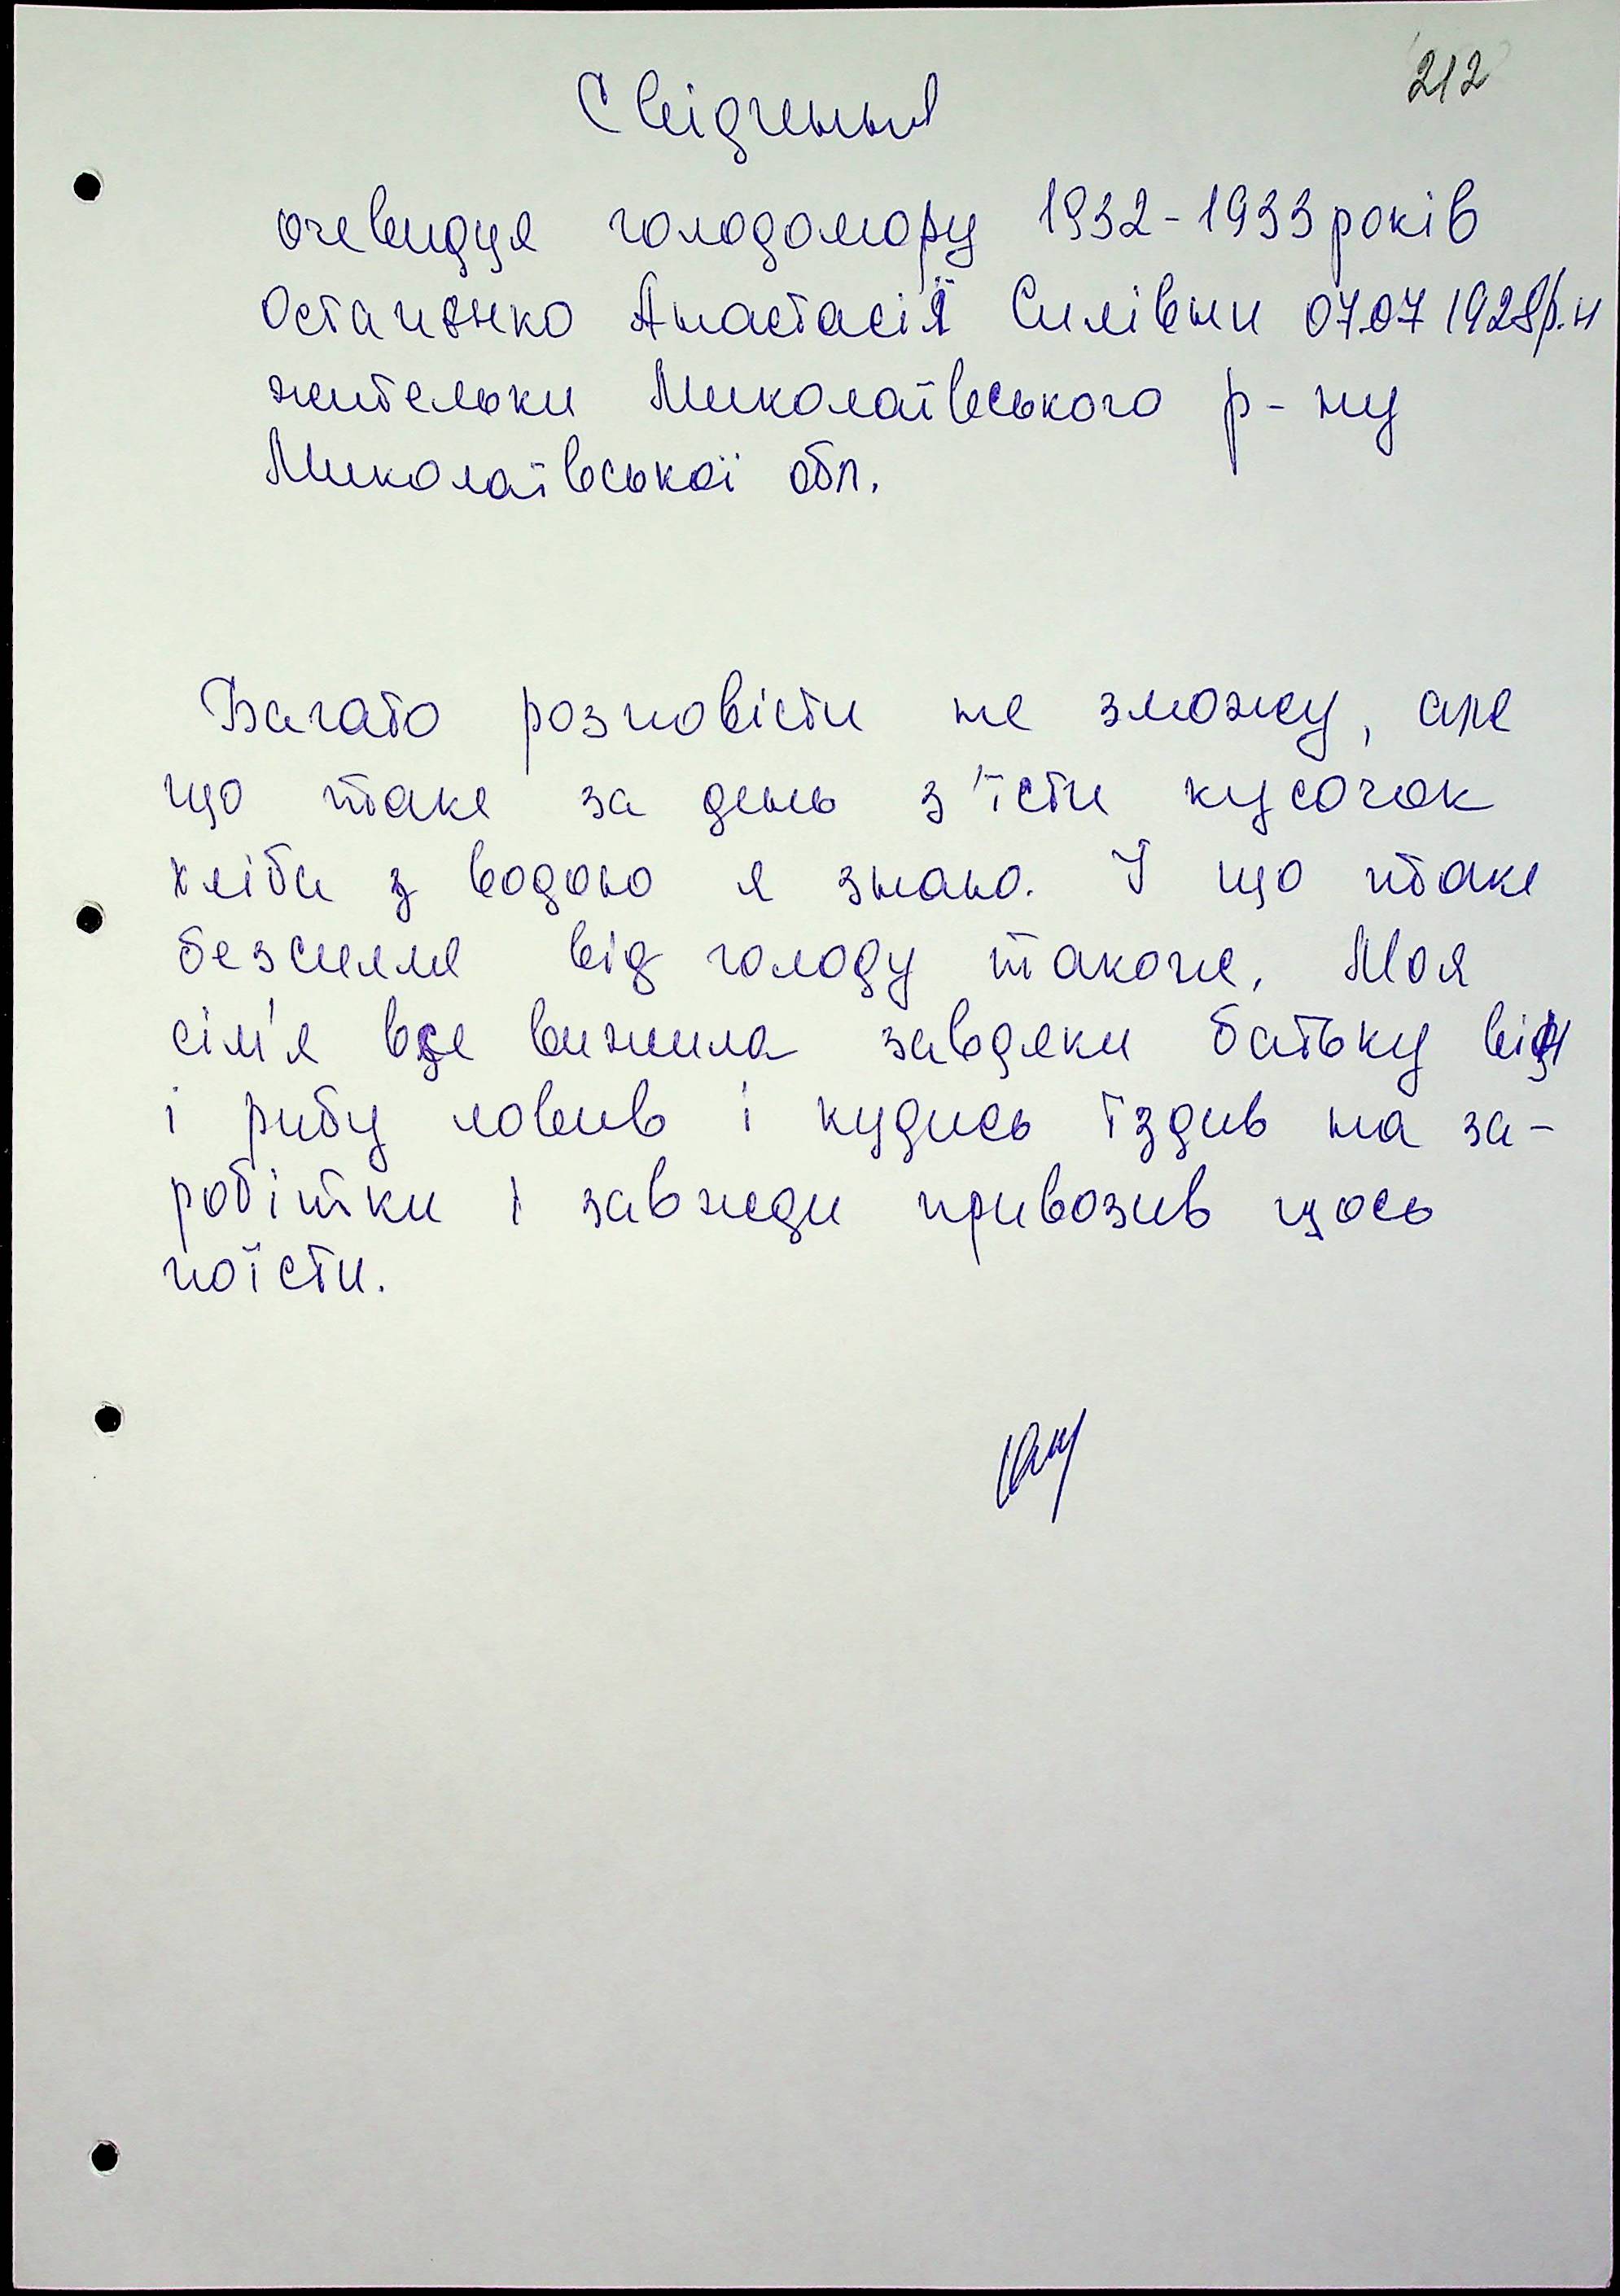 212
Свідчення
очевидця голодомору 1932-1933 років
Остапенко Анастасії Силівни 07.07 1928р.н
жительки Миколаївського р-ну
Миколаївської обл.
Багато розповісти не зможу, але
що таке за день з'їсти кусочок
хліба з водою я знаю. І що таке
безсилля від голоду також. Моя
сім'я все вижила завдяки батьку він
і рибу ловив і кудись їздив на за-
робітки і завжди привозив щось
поїсти.